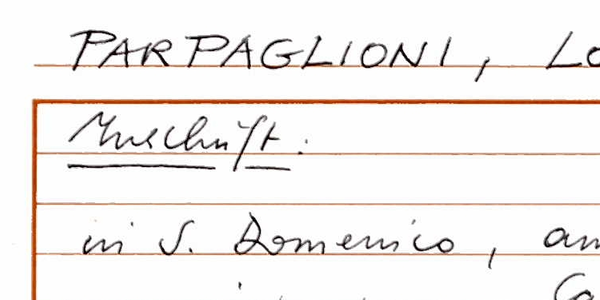 PARPAGLIONI, Lo
Inschrift:
in S. Domenico, an